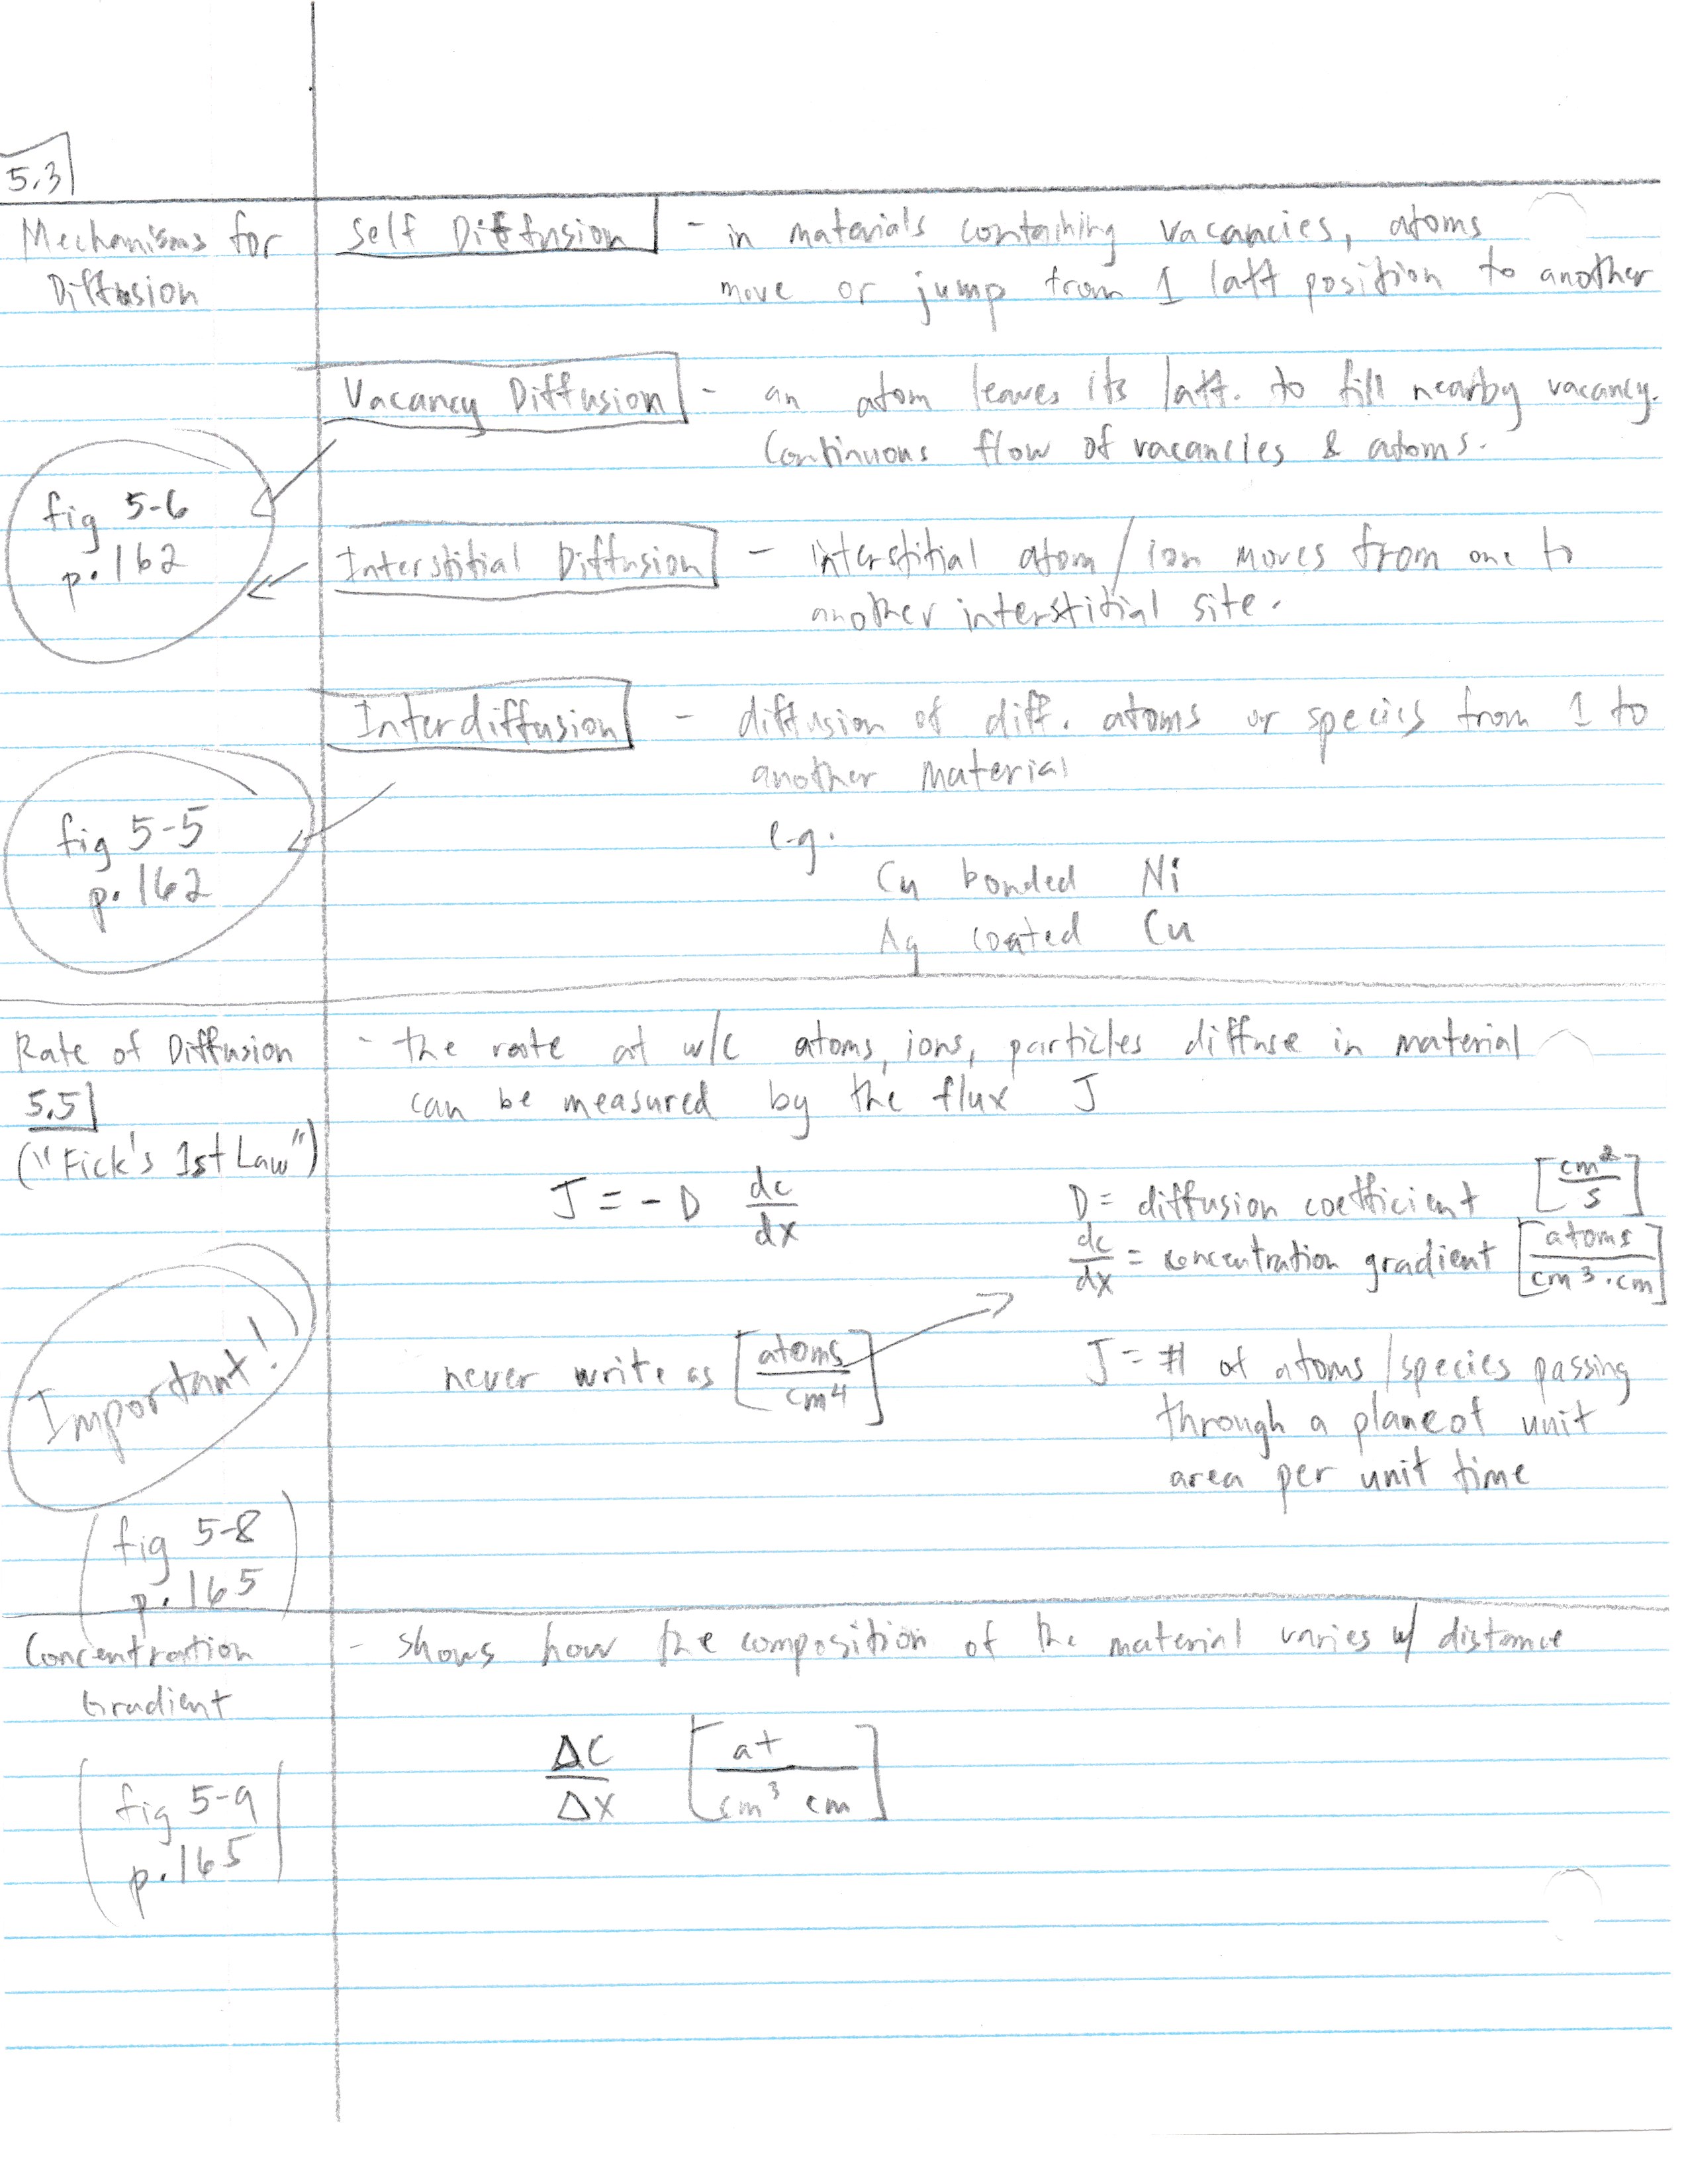 5.3
Mechanisms for
Diffusion
Self Diffusion - in materials containing vacancies, atoms
move or jump from 1 latt position to another
Vacancy Diffusion - an atom leaves its latt. to fill nearby vacancy.
Continuous flow of vacancies & atoms.
fig 5-6
p. 162
Interstitial Diffusion - interstitial atom/ion moves from one to
another interstitial site.
Interdiffusion - diffusion of diff. atoms or species from 1 to
another material
fig 5-5
p. 162
e.g.
Cu bonded Ni
Ag coated Cu
Rate of Diffusion
5.5
("Fick's 1st Law")
- the rate at w/c atoms, ions, particles diffuse in material
can be measured by the flux J
J = - D dc/dx
D = diffusion coefficient [cm²/s]
dc/dx = concentration gradient [atoms/cm³·cm]
Important!
never write as [atoms/cm4]
J = # of atoms/species passing
through a plane of unit
area per unit time
fig 5-8
p. 165
Concentration
Gradient
- shows how the composition of the material varies w/ distance
ΔC/Δx [at/cm³ cm]
fig 5-9
p. 165